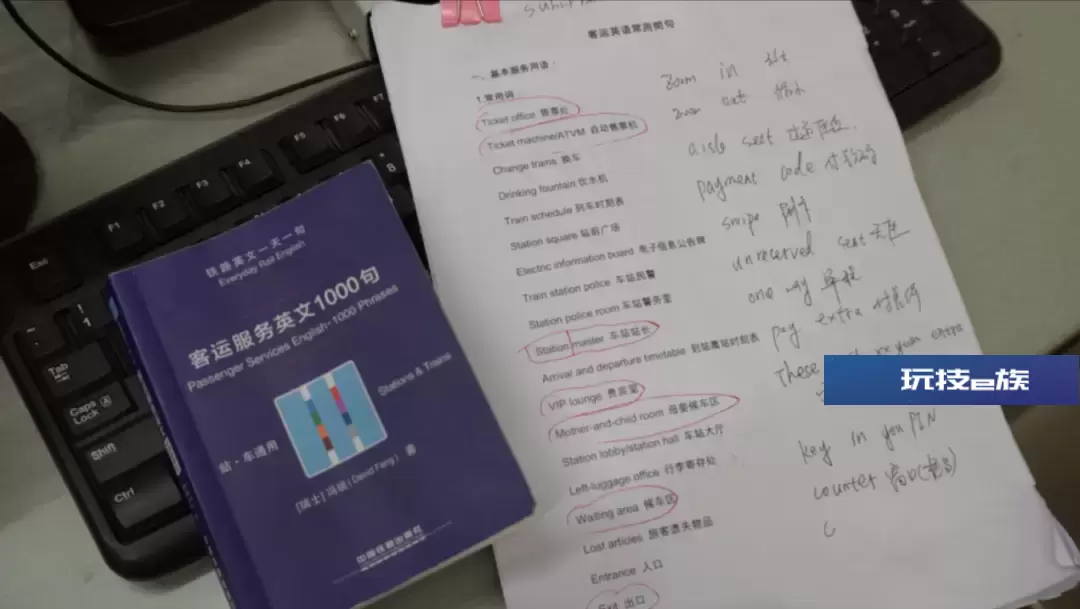 客运英语常用词句
一、基本服务用语：
1.常用词
Ticket office 售票处
Ticket machine/ATVM 自动售票机
Change trains 换车
Drinking fountain 饮水机
Train schedule 列车时刻表
Station square 站前广场
Electric information board 电子信息公告牌
Train station police 车站民警
Station police room 车站警务室
Station master 车站站长
Arrival and departure timetable 到站离站时刻表
VIP lounge 贵宾室
Mother-and-child room 母婴候车区
Station lobby/station hall 车站大厅
Left-luggage office 行李寄存处
Waiting area 候车区
Lost articles 旅客遗失物品
Entrance 入口
Exit 出口
Zoom in 放大
Zoom out 缩小
aisle seat 过道座位
payment code 付款码
swipe 刷卡
unreserved seat 无座
one way 单程
pay extra 付高价
These
xx yuan extra
key in you PIN
counter 窗口
铁路英文一天一句
Everyday Rail English
客运服务英文1000句
Passenger Services English-1000 Phrases
Stations & Trains
站·车通用
[瑞士] 冯砚 (David Fang) 著
中国铁道出版社
Esc
F1
F2
F3
F4
F5
F6
F7
!
1
*
8
Tab
Caps Lock
A
Shift
Ctrl
玩技e族